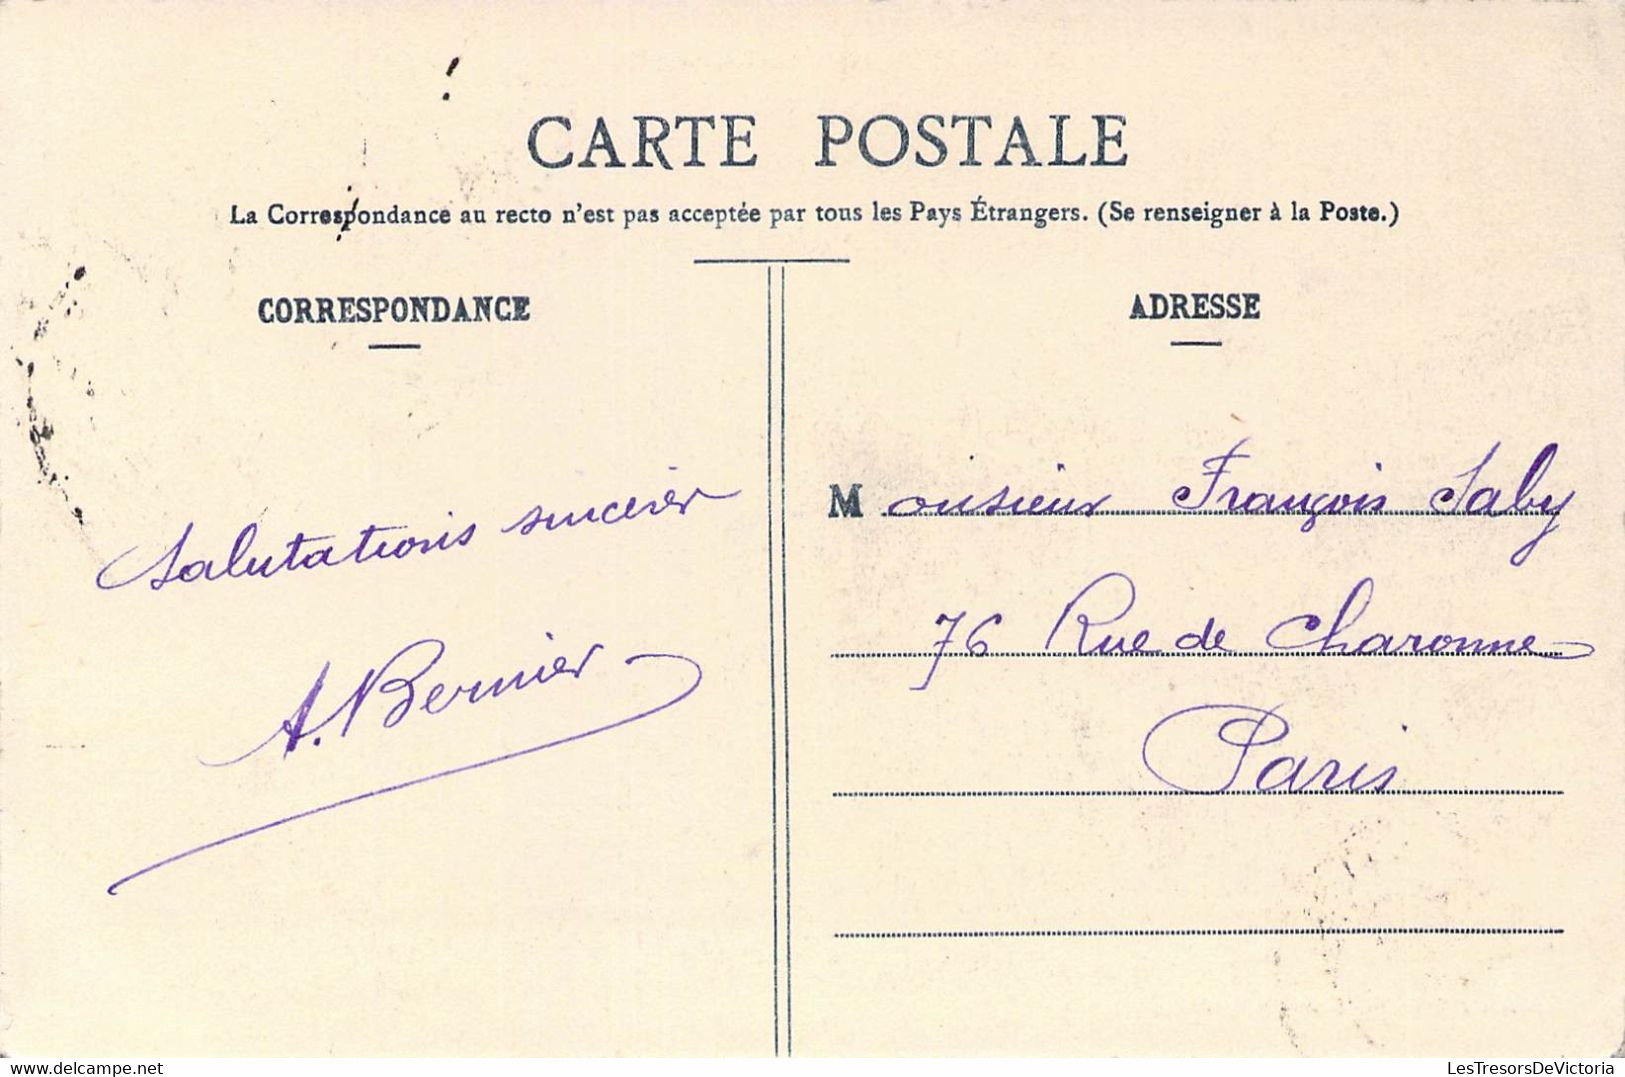 CARTE POSTALE
La Correspondance au recto n'est pas acceptée par tous les Pays Étrangers. (Se renseigner à la Poste.)
CORRESPONDANCE
Salutations sincères
A. Bernier
ADRESSE
Monsieur François Saby
76 Rue de Charonne
Paris
delcampe.net
LesTresorsDeVictoria